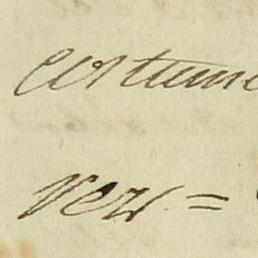 costume
ver=